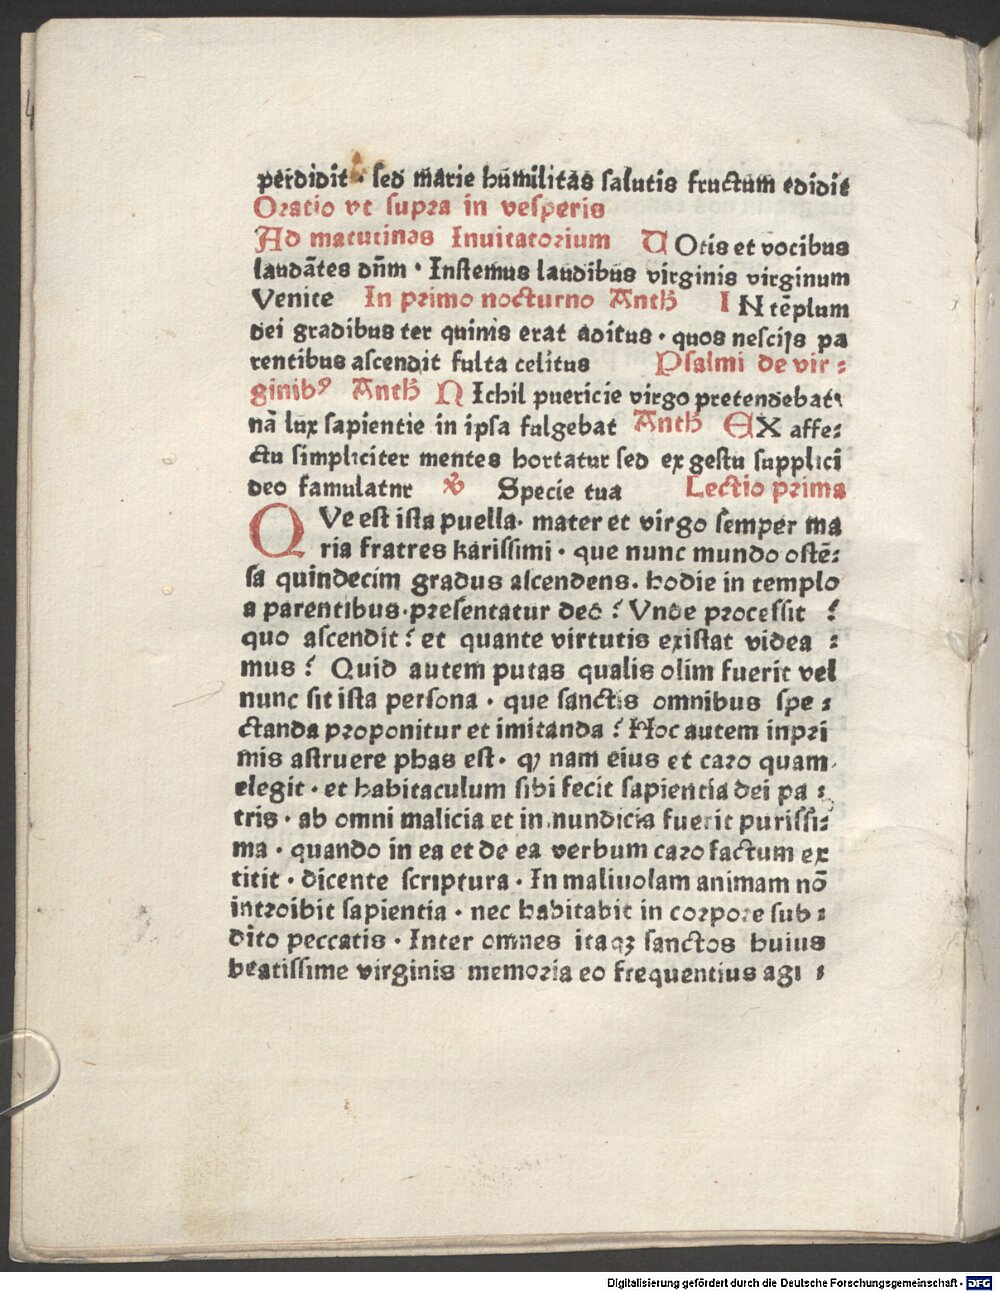 perdidit · sed marie humilitas salutis fructum edidit
Oratio vt supra in vesperis
Ad matutinas Inuitatorium U Otis et vocibus
laudātes dn̄m · Instemus laudibus virginis virginum
Venite In primo nocturno Anth̄ I N tēplum
dei gradibus ter quinis erat aditus · quos nescijs pa
rentibus ascendit fulta celitus Psalmi de vir :
ginibꝰ Anth̄ N Ichil puericie virgo pretendebat
nā lux sapientie in ipsa fulgebat Anth̄ EX affe:
ctu simpliciter mentes hortatur sed ex gestu supplici
deo famulatnr ꝟ Specie tua Lectio prima
Q Ve est ista puella· mater et virgo semper ma
ria fratres karissimi · que nunc mundo ostē:
sa quindecim gradus ascendens. hodie in templo
a parentibus·presentatur deo ? Vnde processit ?
quo ascendit ? et quante virtutis existat videa :
mus ? Quid autem putas qualis olim fuerit vel
nunc sit ista persona · que sanctis omnibus spe :
ctanda proponitur et imitanda ? Hoc autem inpri
mis astruere phas est· ꝙ nam eius et caro quam
elegit · et habitaculum sibi fecit sapientia dei pa :
tris · ab omni malicia et in nundicia fuerit purissi:
ma · quando in ea et de ea verbum caro factum ex
titit · dicente scriptura · In maliuolam animam nō
introibit sapientia · nec habitabit in corpore sub :
dito peccatis · Inter omnes itaqꝫ sanctos huius
beatissime virginis memoria eo frequentius agi :
Digitalisierung gefördert durch die Deutsche Forschungsgemeinschaft - DFG